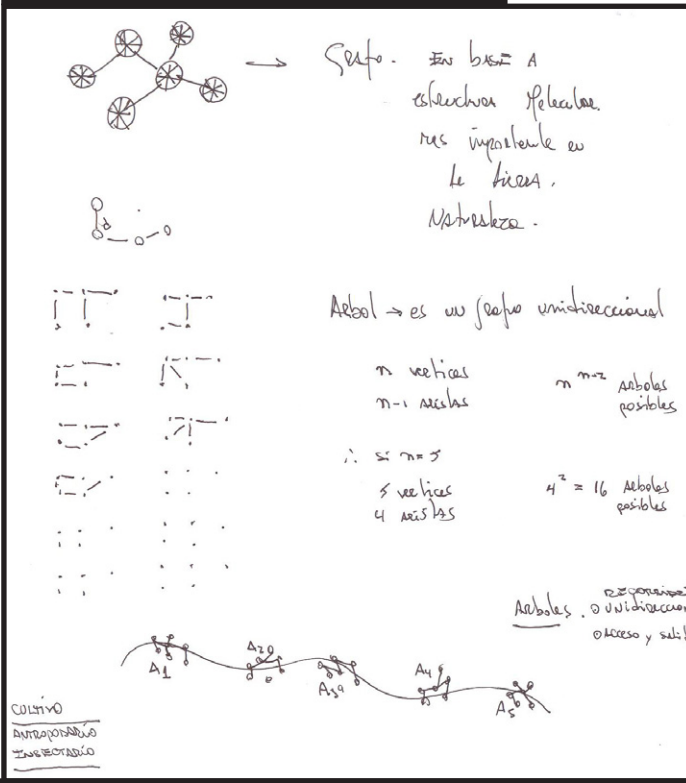 Grafo. EN BASE A
estructuras Molecular
mas importante en
la tierra.
NATURALEZA.
d
Arbol → es un grafo unidireccional
n vertices
n-1 aristas
n^n-2 arboles
posibles
∴ si n=5
5 vertices
4 aristas
4² = 16 arboles
posibles
Arboles.
o UNIDIRECCION
o Acceso y sali
A1
A2
A3
A4
A5
CULTIVO
ANTROPODARIO
INSECTARIO